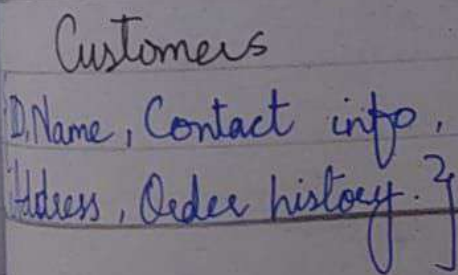 Customers
ID, Name, Contact info,
Address, Order history.}